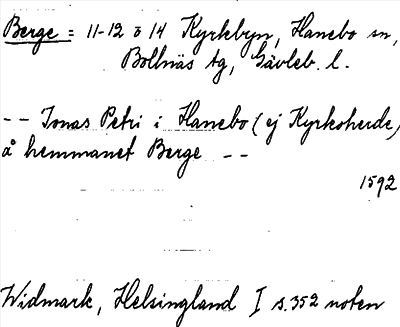 Berge = 11-12 o 14 Kyrkbyn, Hanebo sn,
Bollnäs tg, Gävleb. l.
-- Jonas Petri i Hanebo (ej Kyrkoherde)
å hemmanet Berge --
1592
Widmark, Helsingland I s. 352 noten